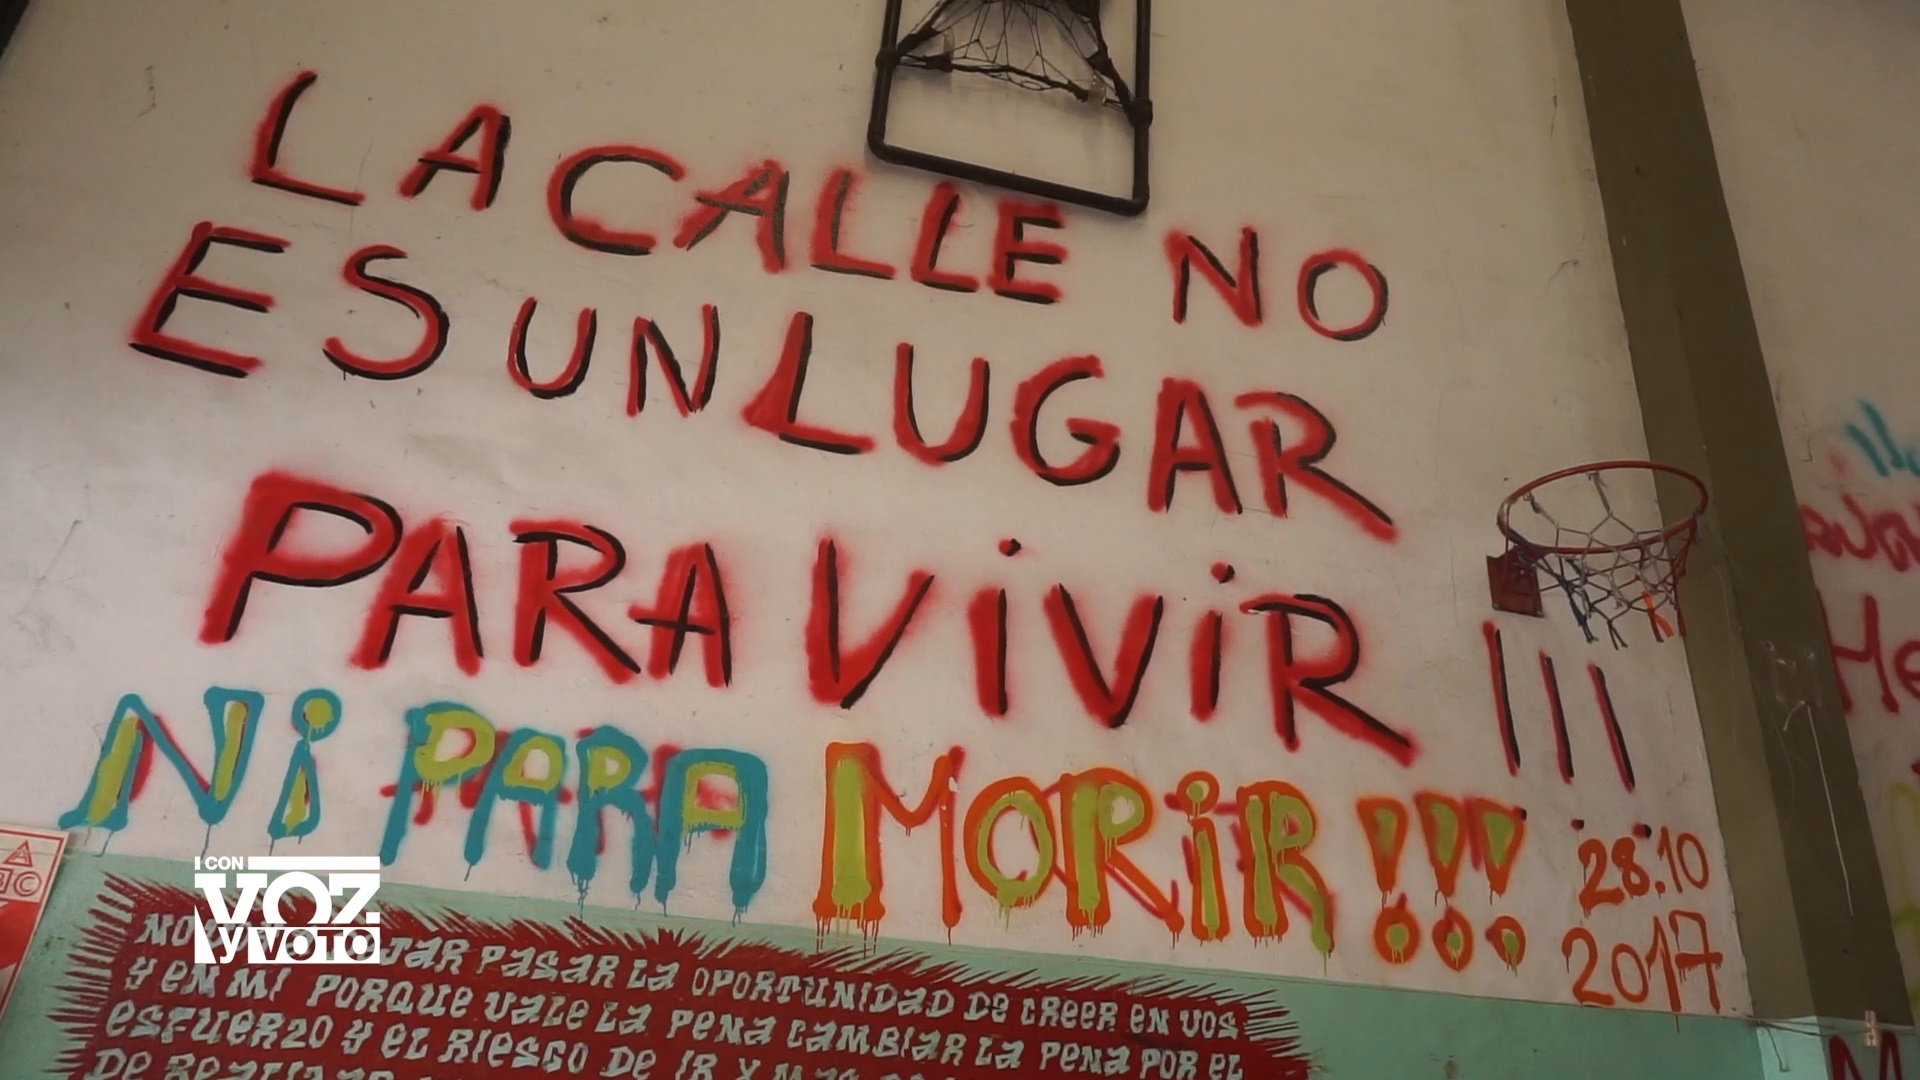 LA CALLE NO
ES UN LUGAR
PARA ViViR
Ni PARA MORiR !!!
28.10
2017
I CON
VOZ
y VOTO
PASAR LA OPORTUNIDAD DE CREER EN VOS
Y EN MI PORQUE VALE LA PENA CAMBIAR LA PENA POR EL
ESFUERZO Y EL RIESGO DE IR Y